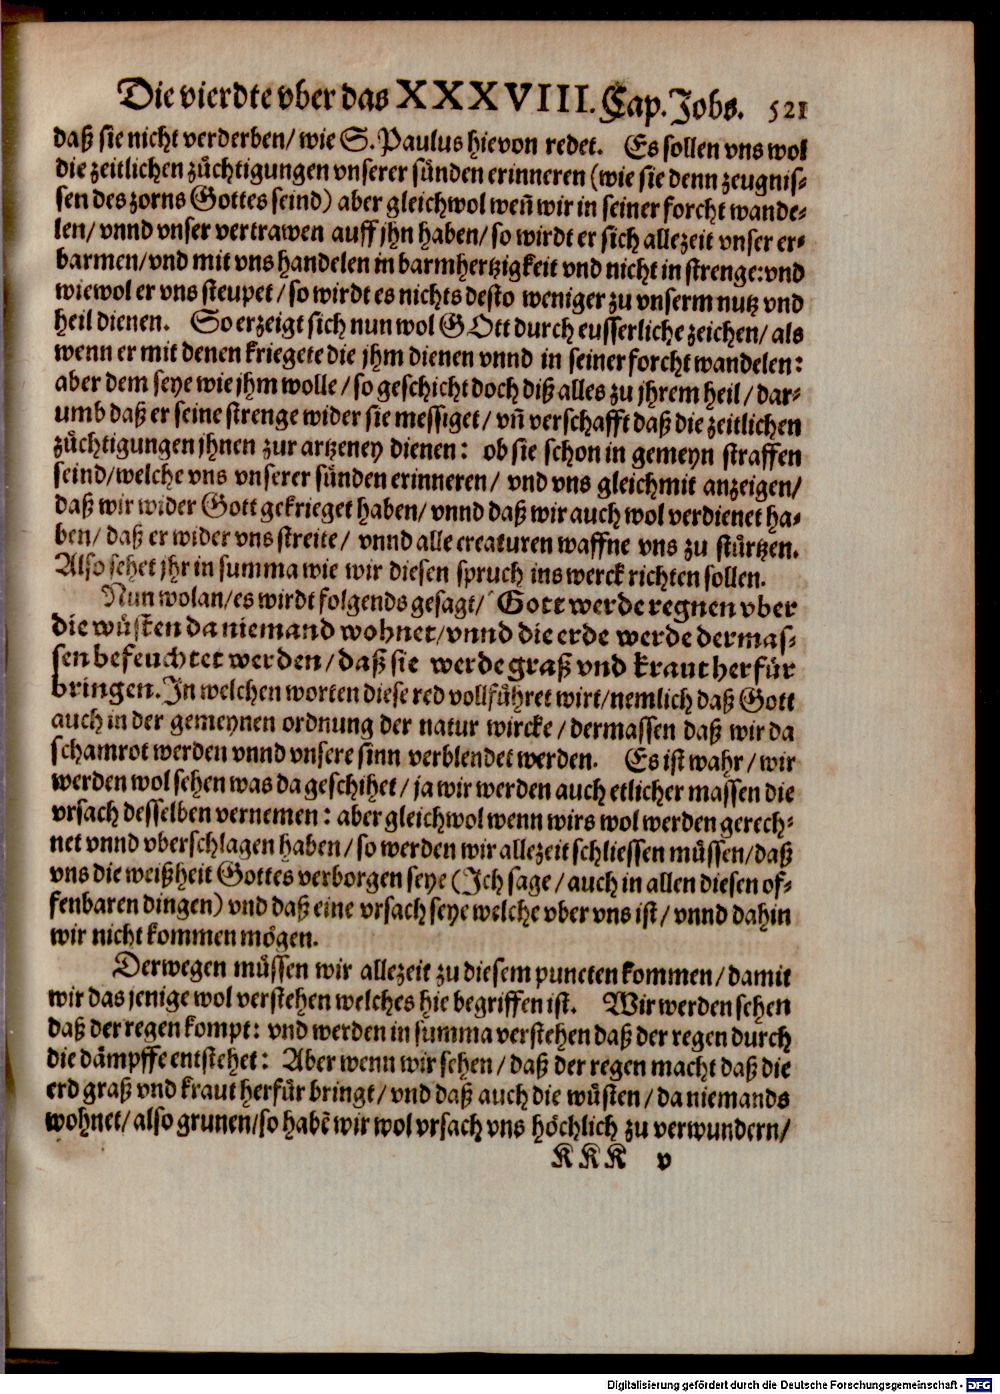 Die vierdte vber das XXXVIII. Cap. Jobs. 521
daß sie nicht verderben/ wie S. Paulus hievon redet. Es sollen vns wol
die zeitlichen züchtigungen vnserer sünden erinneren (wie sie denn zeugnis-
sen des zorns Gottes seind) aber gleichwol weñ wir in seiner forcht wande-
len/ vnnd vnser vertrawen auff jhn haben/ so wirdt er sich allezeit vnser er-
barmen/ vnd mit vns handelen in barmhertzigkeit vnd nicht in strenge: vnd
wiewol er vns steupet/ so wirdt es nichts desto weniger zu vnserm nutz vnd
heil dienen. So erzeigt sich nun wol GOtt durch eusserliche zeichen/ als
wenn er mit denen kriegete die jhm dienen vnnd in seiner forcht wandelen:
aber dem seye wie jhm wolle/ so geschicht doch diß alles zu jhrem heil/ dar-
umb daß er seine strenge wider sie messiget/ vñ verschafft daß die zeitlichen
züchtigungen jhnen zur artzeney dienen: ob sie schon in gemeyn straffen
seind/ welche vns vnserer sünden erinneren/ vnd vns gleich mit anzeigen/
daß wir wider Gott gekrieget haben/ vnnd daß wir auch wol verdienet ha-
ben/ daß er wider vns streite/ vnnd alle creaturen waffne vns zu stürtzen.
Also sehet jhr in summa wie wir diesen spruch ins werck richten sollen.
Nun wolan/ es wirdt folgends gesagt/ Gott werde regnen vber
die wüsten da niemand wohnet/ vnnd die erde werde dermas-
sen befeuchtet werden/ daß sie werde graß vnd kraut herfür
bringen. In welchen worten diese red vollführet wirt/ nemlich daß Gott
auch in der gemeynen ordnung der natur wircke/ dermassen daß wir da
schamrot werden vnnd vnsere sinn verblendet werden. Es ist wahr/ wir
werden wol sehen was da geschihet/ ja wir werden auch etlicher massen die
vrsach desselben vernemen: aber gleichwol wenn wirs wol werden gerech-
net vnnd vberschlagen haben/ so werden wir allezeit schliessen müssen/ daß
vns die weißheit Gottes verborgen seye (Ich sage/ auch in allen diesen of-
fenbaren dingen) vnd daß eine vrsach seye welche vber vns ist/ vnnd dahin
wir nicht kommen mögen.
Derwegen müssen wir allezeit zu diesem puncten kommen/ damit
wir das jenige wol verstehen welches hie begriffen ist. Wir werden sehen
daß der regen kompt: vnd werden in summa verstehen daß der regen durch
die dämpffe entstehet: Aber wenn wir sehen/ daß der regen macht daß die
erd graß vnd kraut herfür bringt/ vnd daß auch die wüsten/ da niemands
wohnet/ also grunen/ so habẽ wir wol vrsach vns höchlich zu verwundern/
KKK v
Digitalisierung gefördert durch die Deutsche Forschungsgemeinschaft - DFG